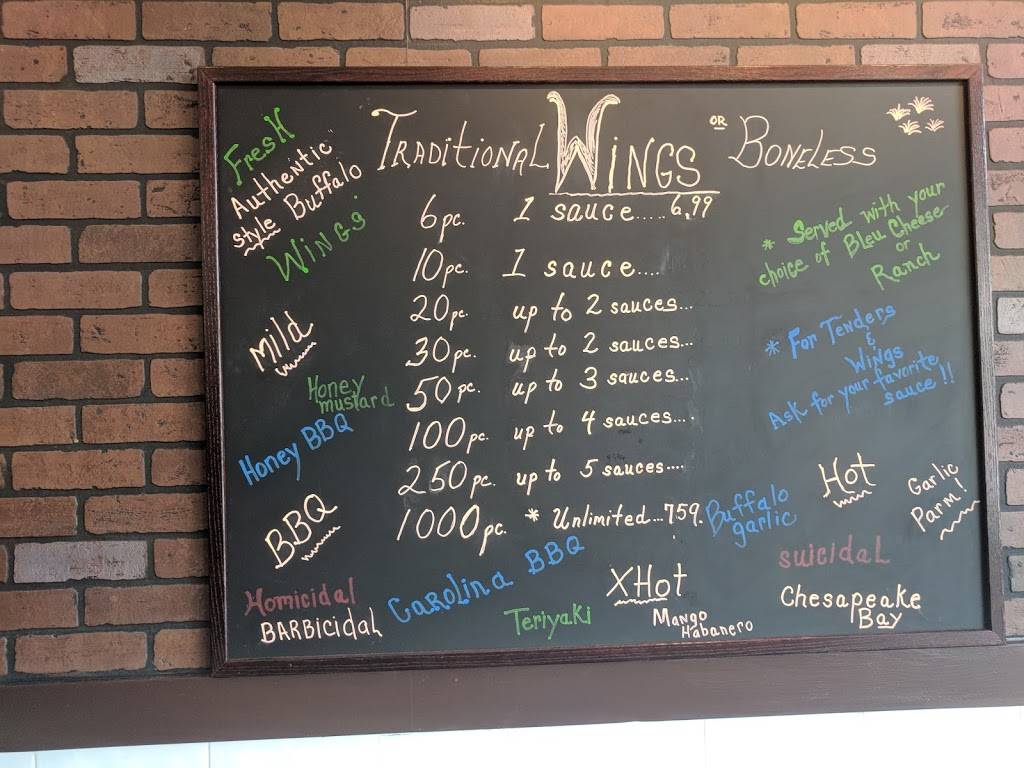 Fresh
Authentic
style Buffalo
Wings
TRADITIONAL WINGS OR BONELESS
6 pc. 1 sauce..... 6.99
10 pc. 1 sauce....
20 pc. up to 2 sauces...
30 pc. up to 2 sauces...
50 pc. up to 3 sauces...
100 pc. up to 4 sauces....
250 pc. up to 5 sauces....
1000 pc. * Unlimited...759.
* Served with your
choice of Bleu Cheese
or
Ranch
* For Tenders
&
Wings
Ask for your favorite
sauce!!
Mild
Honey
mustard
Honey BBQ
BBQ
Homicidal
BARBicidal
Carolina BBQ
Teriyaki
XHot
Mango
Habanero
Buffalo
garlic
Hot
Garlic
Parm!
suicidal
Chesapeake
Bay